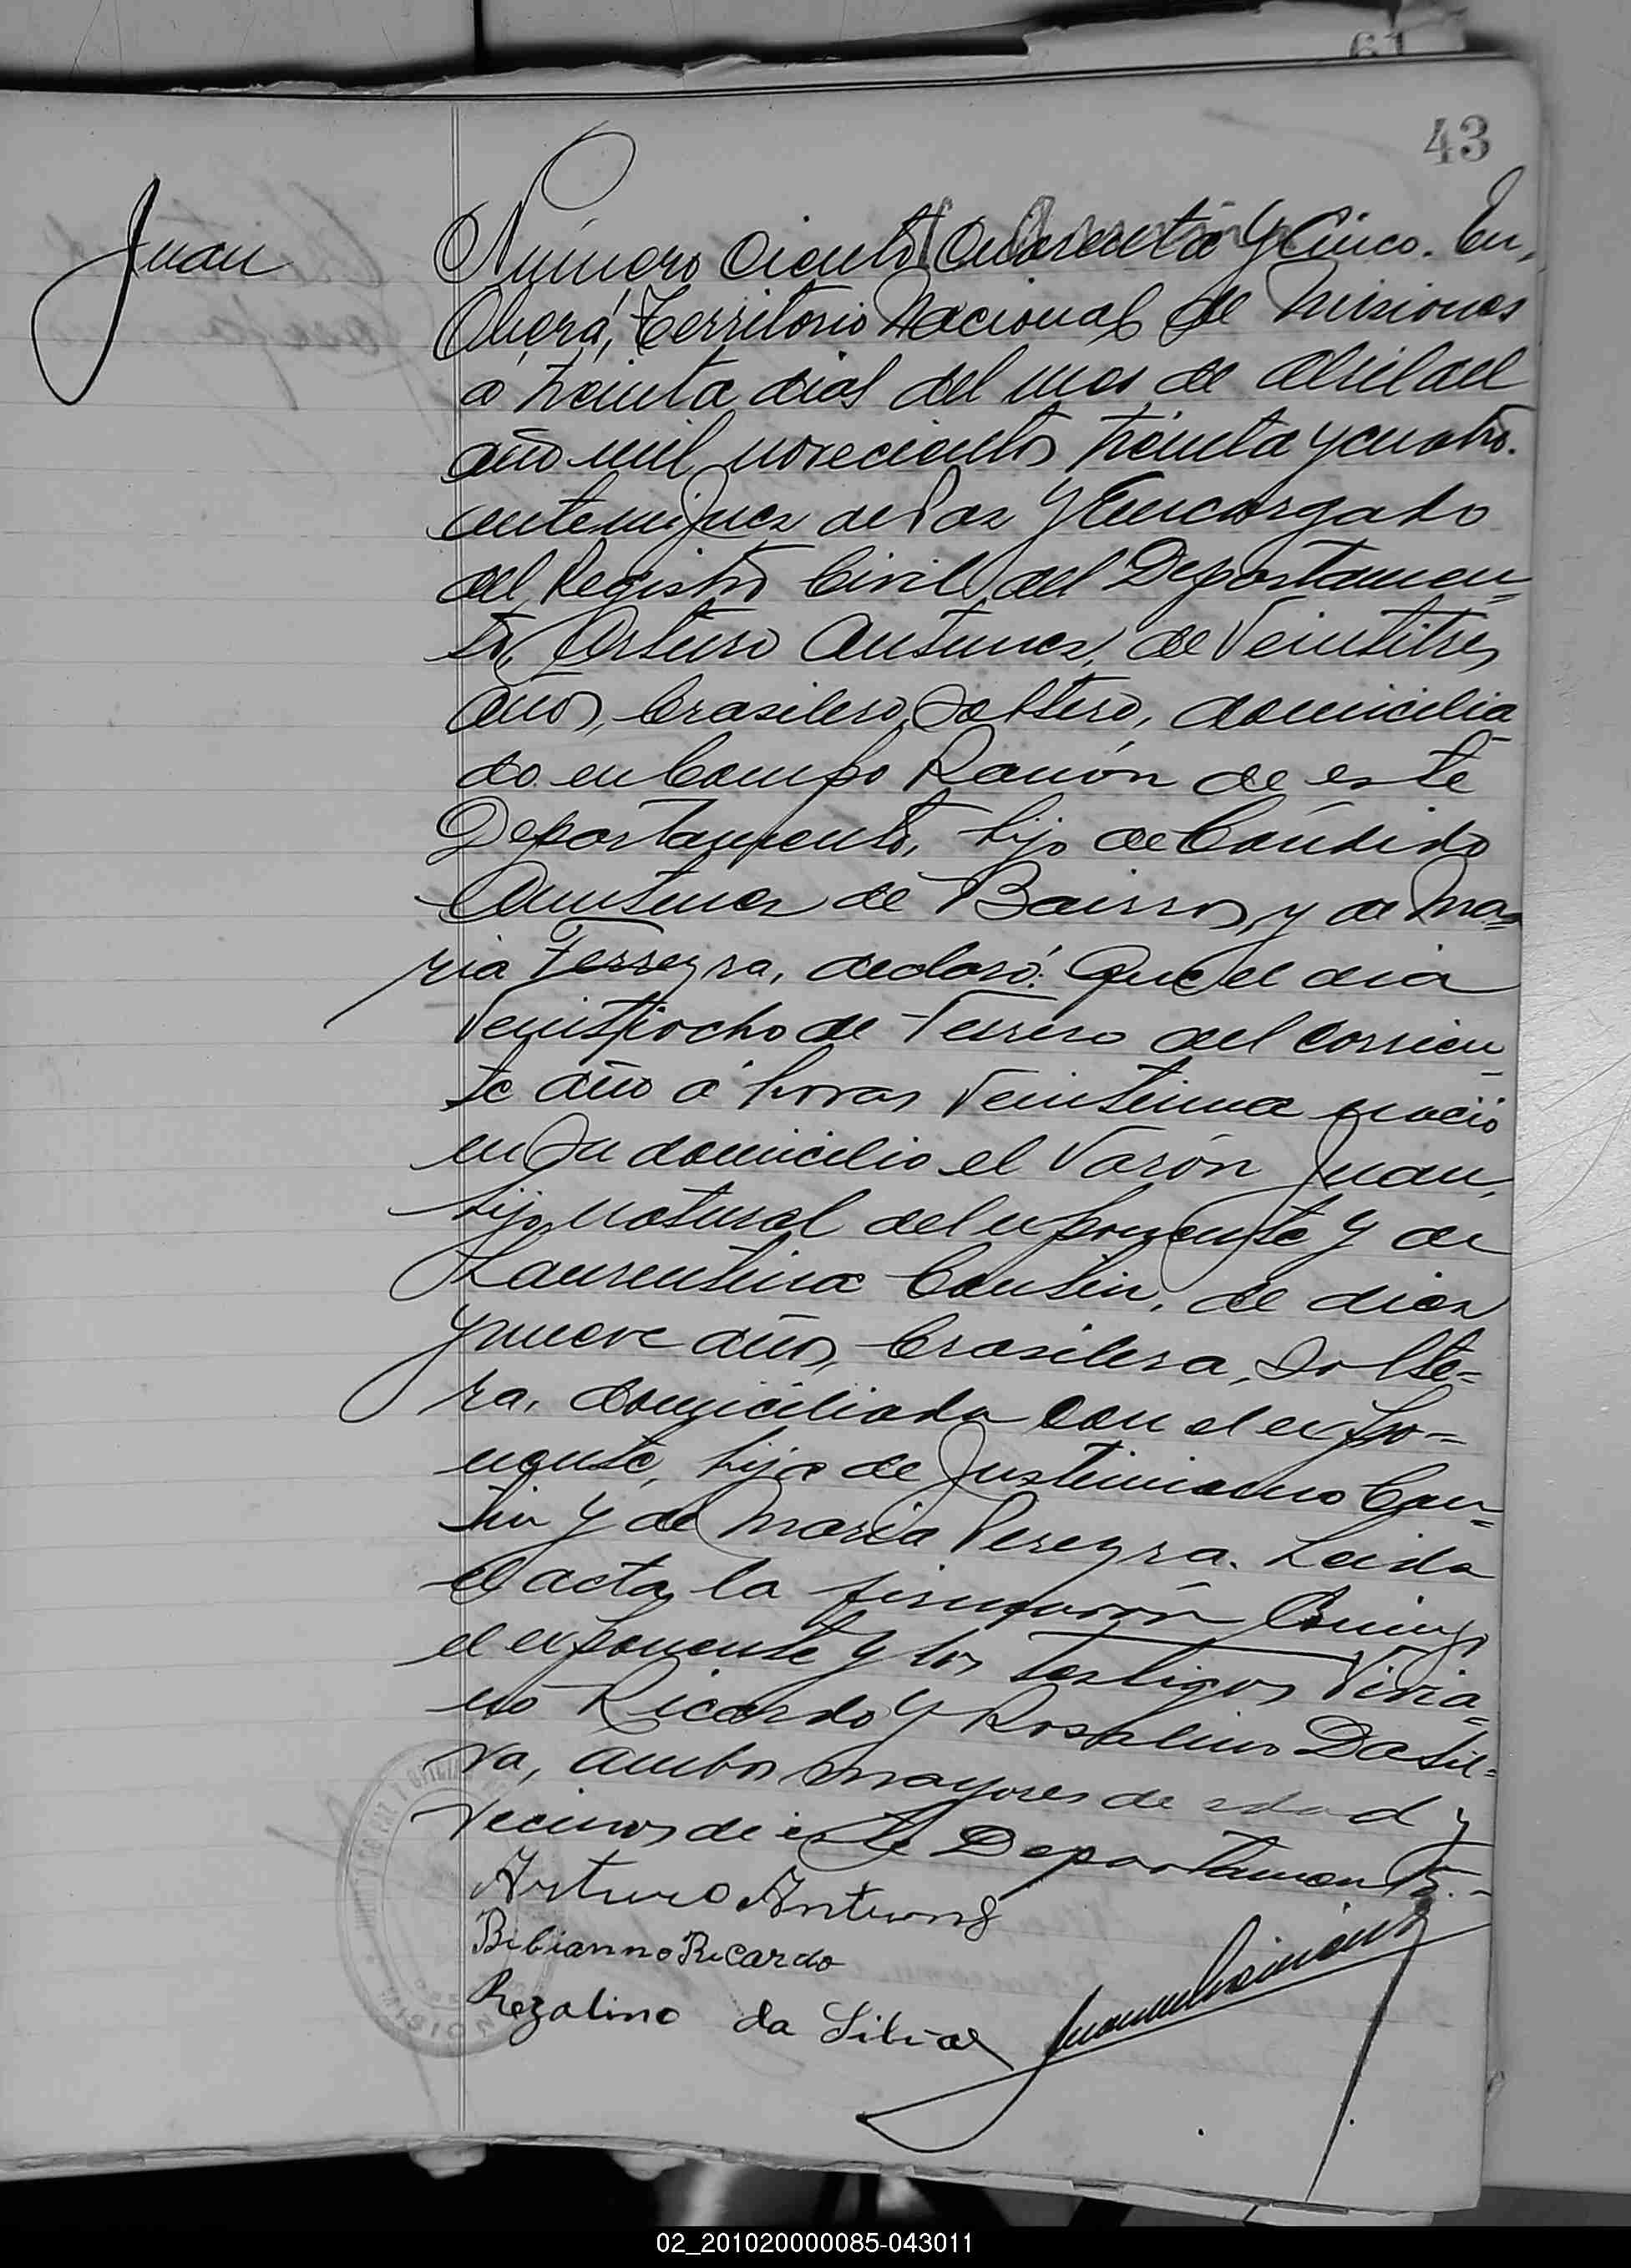 61
43
Juan
Número Ciento Cuarenta y Cinco. En
Oberá, Territorio Nacional de Misiones
a treinta dias del mes de Abril del
año mil novecientos treinta y cuatro.
ante mi Juez de Paz y Encargado
del Registro Civil del Departamen=
to, Arturo Antunez, de Veintitres
años, brasilero, Soltero, domicilia
do en Campo Ramón de este
Departamento, hijo de Cándido
Antunez de Bairros, y de Ma=
ria Ferreyra, declaró: Que el dia
Veintiocho de Ferrero del corrien=
te año á horas Veintiuna nació
en Su domicilio el Varón Juan,
hijo natural del exponente y de
Laurentina Cantin, de diez
y nueve años, brasilera, Solte=
ra, domiciliada con el expo=
nente, hija de Justiniano Can=
tin y de Maria Pereyra. Leida
el acta, la firmaron Conmigo
el exponente y los testigos Vivia=
no Ricardo y Rosalino Da Sil=
va, ambos mayores de edad y
vecinos de este Departamento.-
Arturo Antunes
Bibianno Ricardo
Rozalino da Silva
02_201020000085-043011